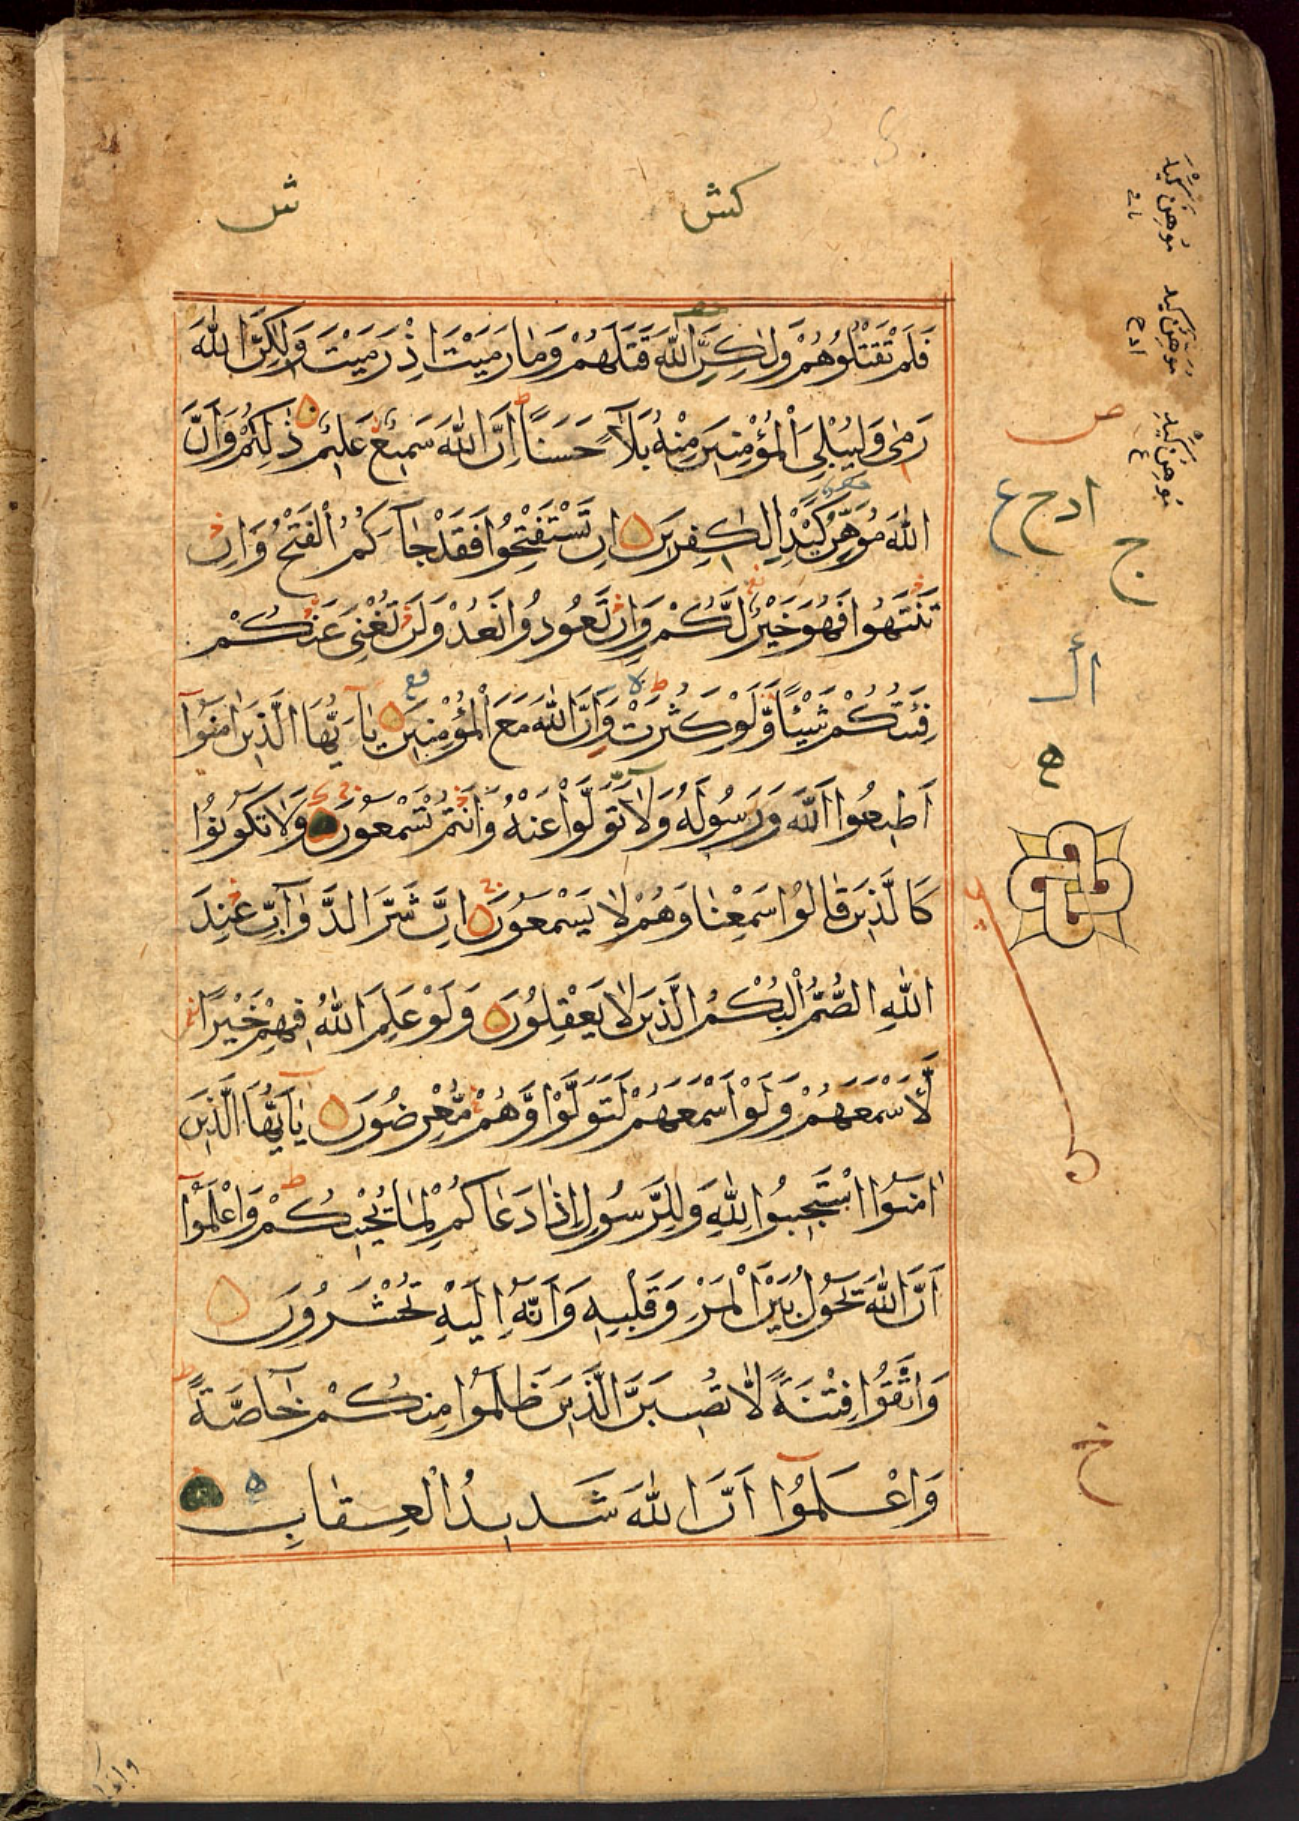 ش كش
فَلَمْ تَقْتُلُوهُمْ وَلٰكِنَّ اللّٰهَ قَتَلَهُمْ وَمَا رَمَيْتَ اِذْ رَمَيْتَ وَلٰكِنَّ اللّٰهَ
رَمٰى وَلِيُبْلِيَ الْمُؤْمِنِينَ مِنْهُ بَلَآءً حَسَنًا اِنَّ اللّٰهَ سَمِيعٌ عَلِيمٌ ذٰلِكُمْ وَاَنَّ
اللّٰهَ مُوَهِّنٌ كَيْدَ الْكٰفِرِينَ اِنْ تَسْتَفْتِحُوا فَقَدْ جَآءَكُمُ الْفَتْحُ وَاِنْ
تَنْتَهُوا فَهُوَ خَيْرٌ لَّكُمْ وَاِنْ تَعُودُوا نَعُدْ وَلَنْ تُغْنِيَ عَنْكُمْ
فِئَتُكُمْ شَيْئًا وَّلَوْ كَثُرَتْ وَاِنَّ اللّٰهَ مَعَ الْمُؤْمِنِينَ يٰآ اَيُّهَا الَّذِينَ اٰمَنُوٓا
اَطِيعُوا اللّٰهَ وَرَسُولَهُ وَلَا تَوَلَّوْا عَنْهُ وَاَنْتُمْ تَسْمَعُونَ وَلَا تَكُونُوا
كَالَّذِينَ قَالُوا سَمِعْنَا وَهُمْ لَا يَسْمَعُونَ اِنَّ شَرَّ الدَّوَآبِّ عِنْدَ
اللّٰهِ الصُّمُّ الْبُكْمُ الَّذِينَ لَا يَعْقِلُونَ وَلَوْ عَلِمَ اللّٰهُ فِيهِمْ خَيْرًا
لَّاَسْمَعَهُمْ وَلَوْ اَسْمَعَهُمْ لَتَوَلَّوْا وَّهُمْ مُّعْرِضُونَ يٰآ اَيُّهَا الَّذِينَ
اٰمَنُوا اسْتَجِيبُوا لِلّٰهِ وَلِلرَّسُولِ اِذَا دَعَاكُمْ لِمَا يُحْيِيكُمْ وَاعْلَمُوٓا
اَنَّ اللّٰهَ يَحُولُ بَيْنَ الْمَرْءِ وَقَلْبِهِ وَاَنَّهُ اِلَيْهِ تُحْشَرُونَ
وَاتَّقُوا فِتْنَةً لَّا تُصِيبَنَّ الَّذِينَ ظَلَمُوا مِنْكُمْ خَآصَّةً
وَاعْلَمُوٓا اَنَّ اللّٰهَ شَدِيدُ الْعِقَابِ
ص
ادح ع
ج
ح
مُوهِنٌ كَيْدَ
مُوَهِّنٌ كَيْدَ
ادح
مُوهِنُ كَيْدِ
ع